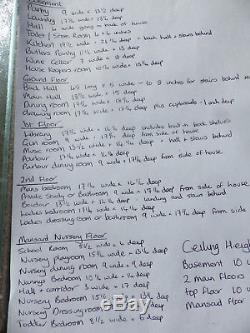 Basement
Pantry 9 wide x 13½ deep
Laundry 17½ wide x 18½ deep
Hall 6 wide long
Toilet / Store Room 6 x 6 inches
Kitchen 17½ wide x 21½ deep + back hall + stairs behind
Butlers Pantry 17½ x 15 deep
Wine Cellar 7 wide x 15 deep
House Keepers room 10½ wide x 13½ deep
Ground Floor
Back Hall 6½ long x 5 wide to 9 inches for stairs behind
Main Hall 13½ wide x 15 deep
Dining room 17½ wide x 18½ deep
drawing room 17½ wide x 17½ deep plus cupboards - 1 inch deep
1st Floor
Library 17½ wide x 16½ deep includes built in book shelves
Gun room 8 wide x 17½ deep from side of house
Music room 13½ wide x 15½ deep + hall + stairs behind
Parlour 17½ wide x 16½ deep
Parlour dining room 9 wide x 17½ deep from side of house
2nd Floor
Mans bedroom 17½ wide x 16½ deep
Private Study or Bedroom 9 wide x 17½ deep from side of house
Boudoir 13½ wide x 10½ deep to landing and stairs behind
Ladies bedroom 17½ wide x 16½ deep
Ladies dressing room or bathroom 9 wide x 17½ deep from side of house
Mansard Nursery Floor
School Room 8½ wide x 6 deep
Nursery playroom 15½ wide x 13½ deep
Nursery dining room 9 wide x 14 deep
Nannys Bedroom 15½ wide x 14 deep
Hall + corridor 3 wide x 17½ deep
Nursery Bedroom 15½ wide x 13½ deep
Nursery Dressing room
Toddler Bedroom 8½ wide x 5 deep
Ceiling Heigh
Basement 10
2 main Floors
top Floor 10
Mansard Floor